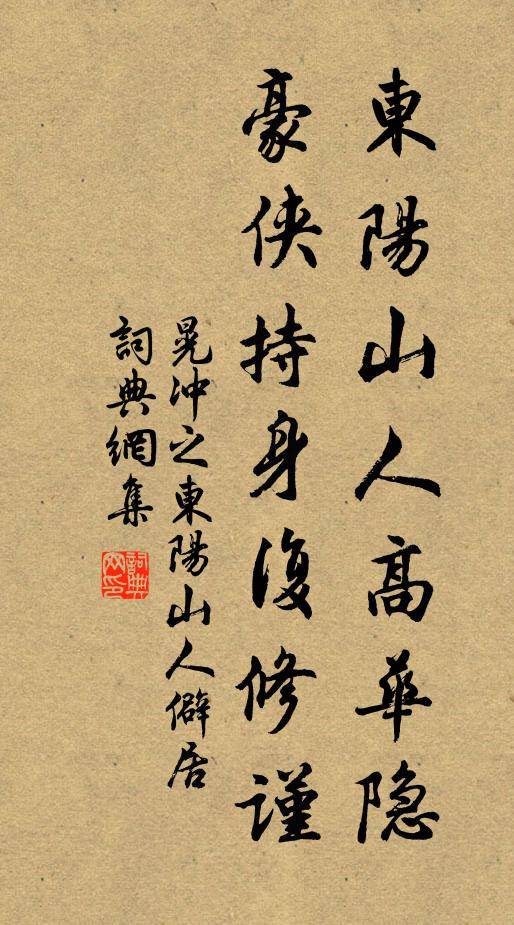 東陽山人高華隐
豪侠持身復修謹
晁冲之東陽山人僻居
詞典網集
詞典網印